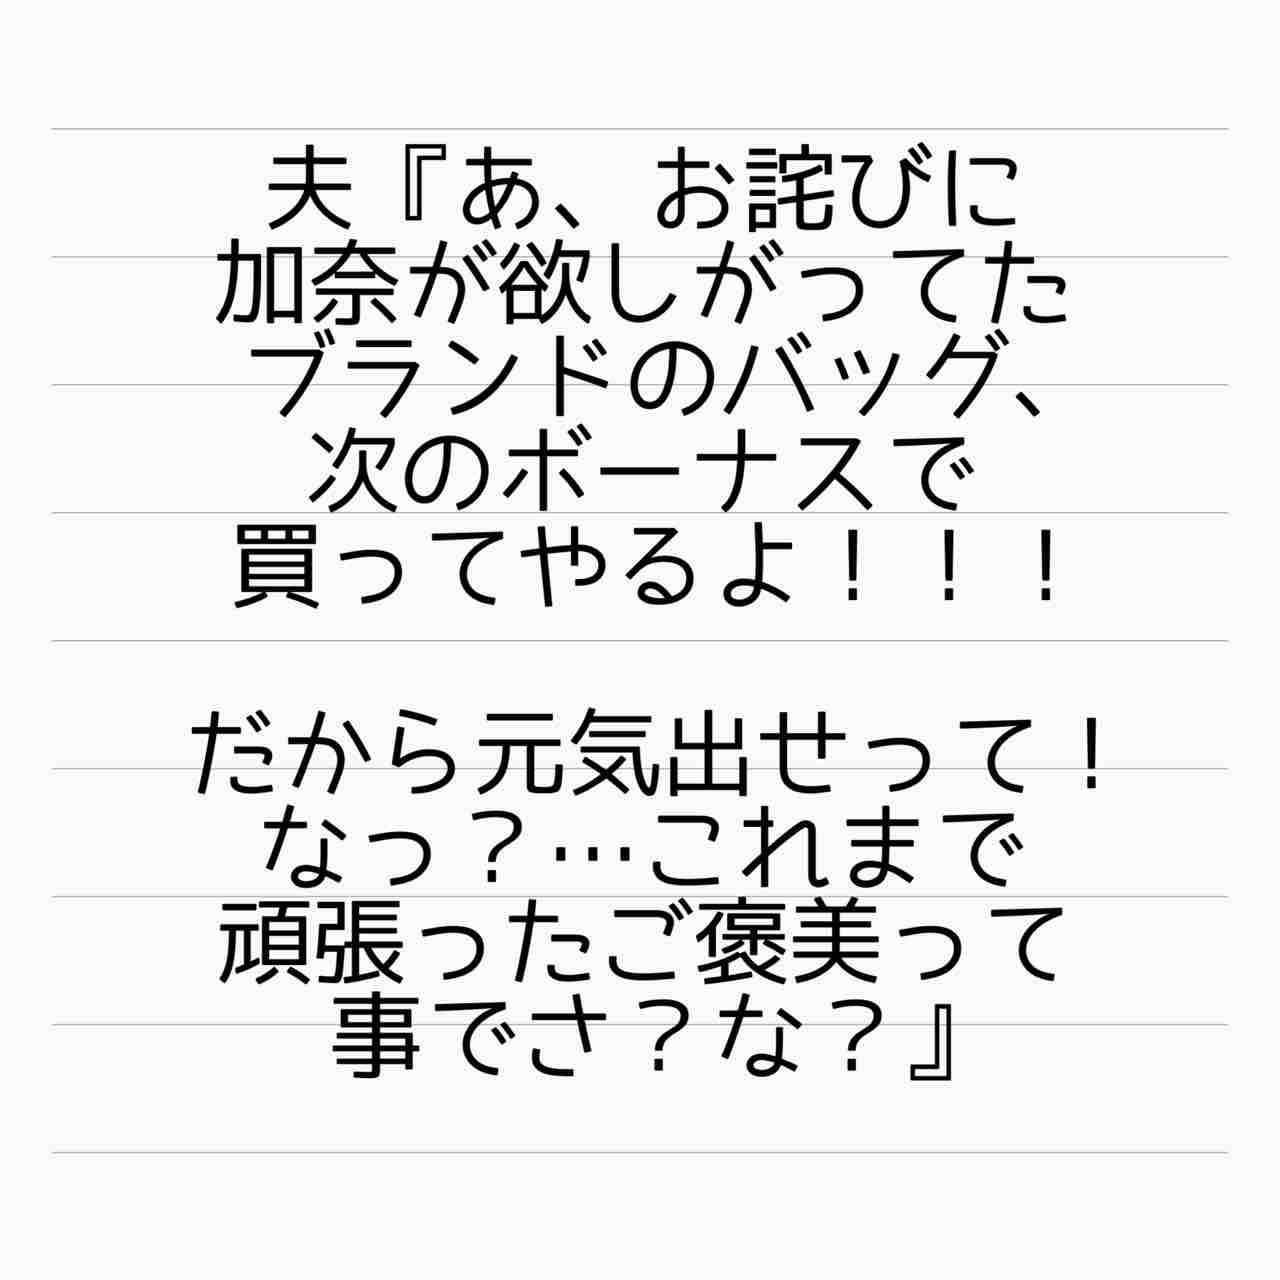 夫『あ、お詫びに
加奈が欲しがってた
ブランドのバッグ、
次のボーナスで
買ってやるよ！！！
だから元気出せって！
なっ？…これまで
頑張ったご褒美って
事でさ？な？』